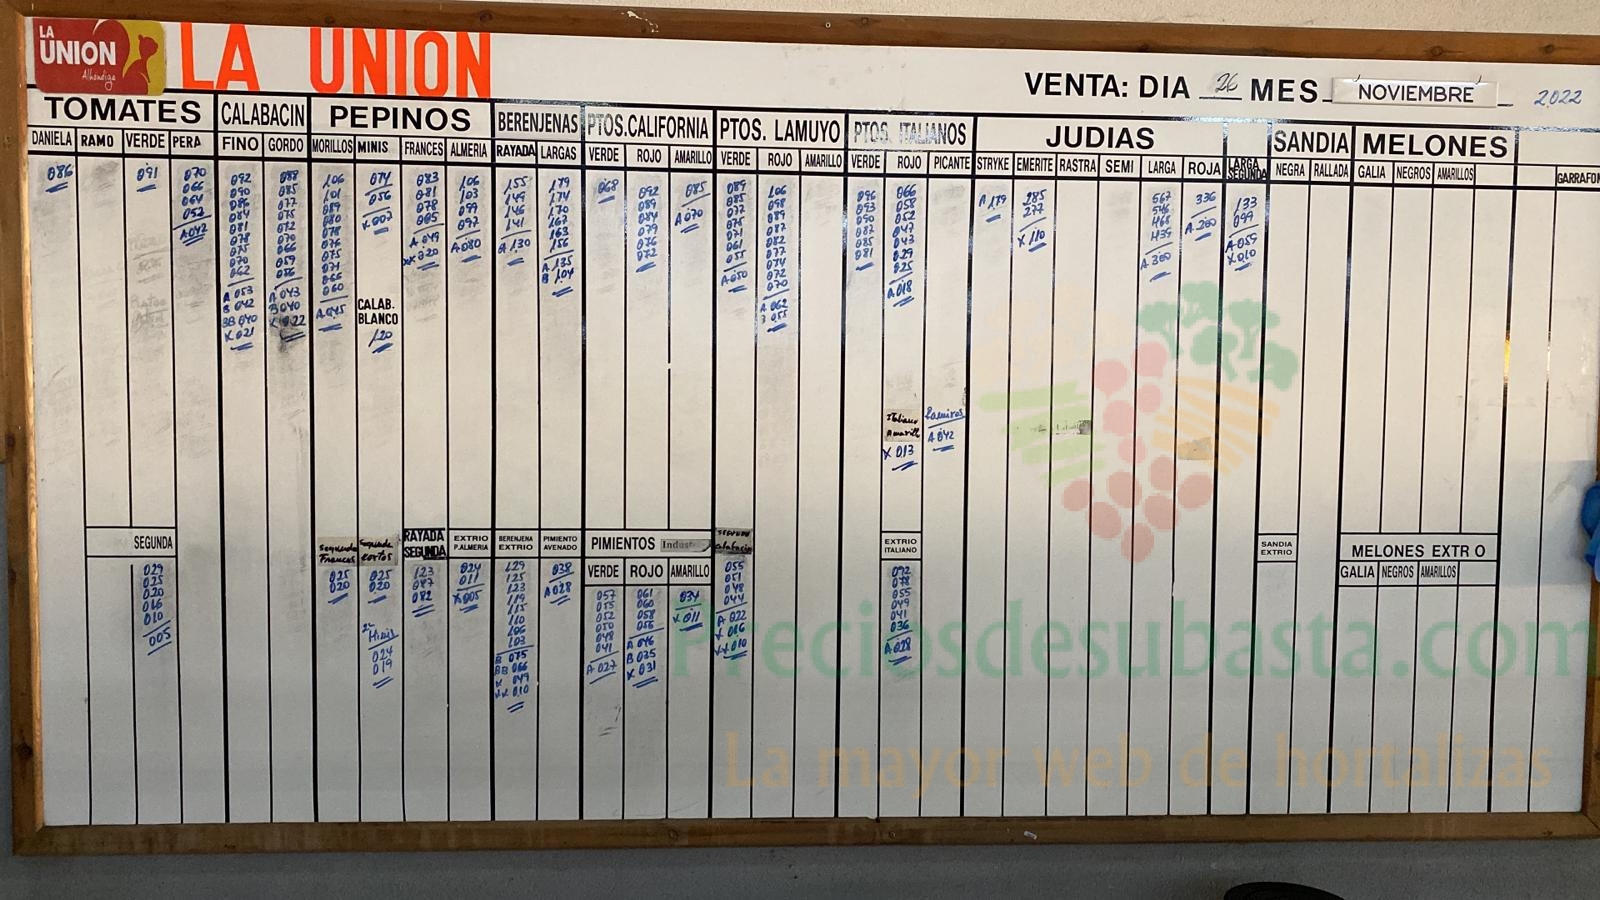 LA UNION Alhóndiga
LA UNION
VENTA: DIA 26 MES NOVIEMBRE 2022
TOMATES CALABACIN PEPINOS BERENJENAS PTOS.CALIFORNIA PTOS. LAMUYO PTOS. ITALIANOS JUDIAS SANDIA MELONES
DANIELA RAMO VERDE PERA FINO GORDO MORILLOS MINIS FRANCES ALMERIA RAYADA LARGAS VERDE ROJO AMARILLO VERDE ROJO AMARILLO VERDE ROJO PICANTE STRYKE EMERITE RASTRA SEMI LARGA ROJA LARGA SEGUNDA NEGRA RALLADA GALIA NEGROS AMARILLOS GARRAFON
086
091
070
066
064
052
A 042
092
090
086
084
081
078
075
070
062
A 053
B 042
BB 040
X 021
088
085
077
075
072
070
066
059
056
A 043
B 040
X 022
106
101
089
080
078
076
075
071
066
060
A 045
074
056
X 007
CALAB. BLANCO
120
083
081
078
065
A 049
XX 020
106
103
099
097
A 080
155
149
146
141
A 130
179
174
170
167
163
156
A 135
B 104
068
092
089
084
079
076
072
085
A 070
089
085
077
075
071
061
055
A 050
106
098
089
087
082
077
074
072
070
A 062
B 055
096
093
090
087
085
081
066
058
052
047
043
029
025
A 018
Italiano Amarill
X 013
Ramiros
A 042
A 179
285
277
X 110
567
546
468
435
A 300
336
A 200
133
099
A 055
X 010
SEGUNDA
029
025
020
016
010
005
Segunda Frances
025
020
Segunda cortos
025
020
2ª Minis
024
019
RAYADA SEGUNDA
123
087
082
EXTRIO P.ALMERIA
024
011
X 005
BERENJENA EXTRIO
129
125
123
119
115
110
106
103
B 075
BB 066
X 049
XX 010
PIMIENTO AVENADO
038
A 028
PIMIENTOS Indust
VERDE ROJO AMARILLO
057
055
052
050
048
041
A 027
061
060
058
056
A 046
B 035
X 031
034
X 011
SEGUNDA calabacin
055
051
048
044
A 022
X 016
XX 010
EXTRIO ITALIANO
092
078
055
049
041
036
A 028
SANDIA EXTRIO
MELONES EXTRIO
GALIA NEGROS AMARILLOS
Preciosdesubasta.com
La mayor web de hortalizas